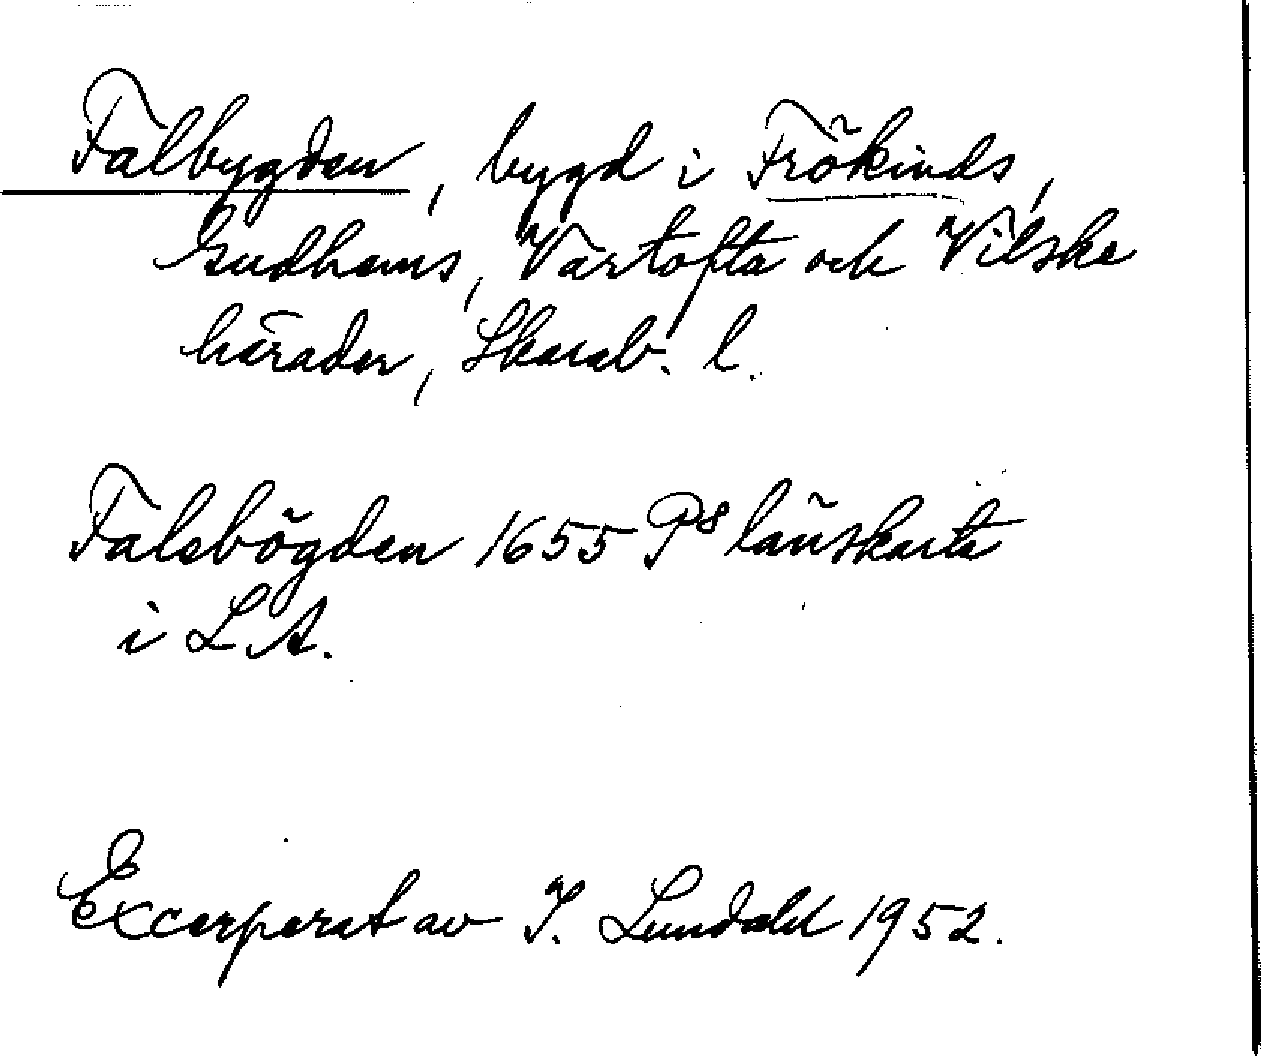 Falbygden, bygd i Frökinds,
Gudhems, Vartofta och Vilske
härader, Skarab. l.
Falebögden 1655 P⁸ länskarta
i L.A.
Excerperat av I. Lundahl 1952.